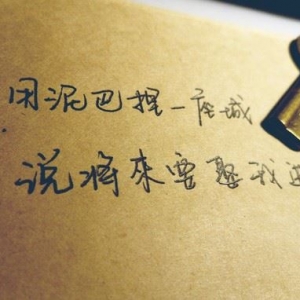 用泥巴捏一座城
说将來要娶我